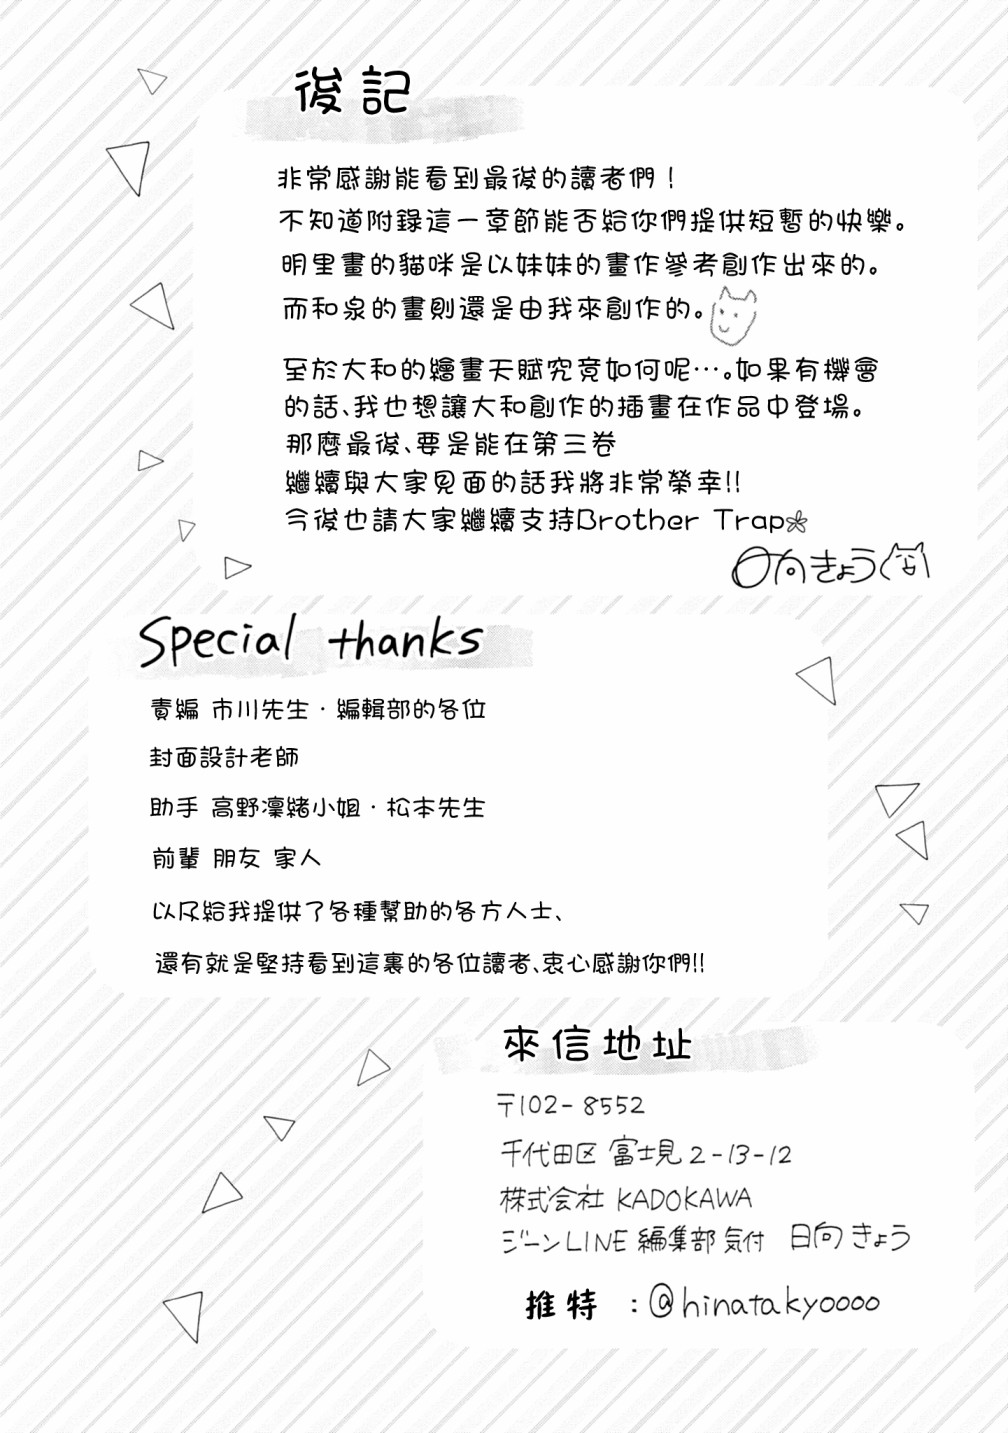 後記
非常感謝能看到最後的讀者們！
不知道附錄這一章節能否給你們提供短暫的快樂。
明里畫的貓咪是以妹妹的畫作參考創作出來的。
而和泉的畫則還是由我來創作的。
至於大和的繪畫天賦究竟如何呢…。如果有機會
的話、我也想讓大和創作的插畫在作品中登場。
那麼最後、要是能在第三卷
繼續與大家見面的話我將非常榮幸!!
今後也請大家繼續支持Brother Trap
日向きょう
Special thanks
責編 市川先生・編輯部的各位
封面設計老師
助手 高野凜緒小姐・松本先生
前輩 朋友 家人
以及給我提供了各種幫助的各方人士、
還有就是堅持看到這裏的各位讀者、衷心感謝你們!!
來信地址
〒102-8552
千代田区 富士見2-13-12
株式会社 KADOKAWA
ジーンLINE 編集部 気付 日向きょう
推特 ：@hinatakyoooo